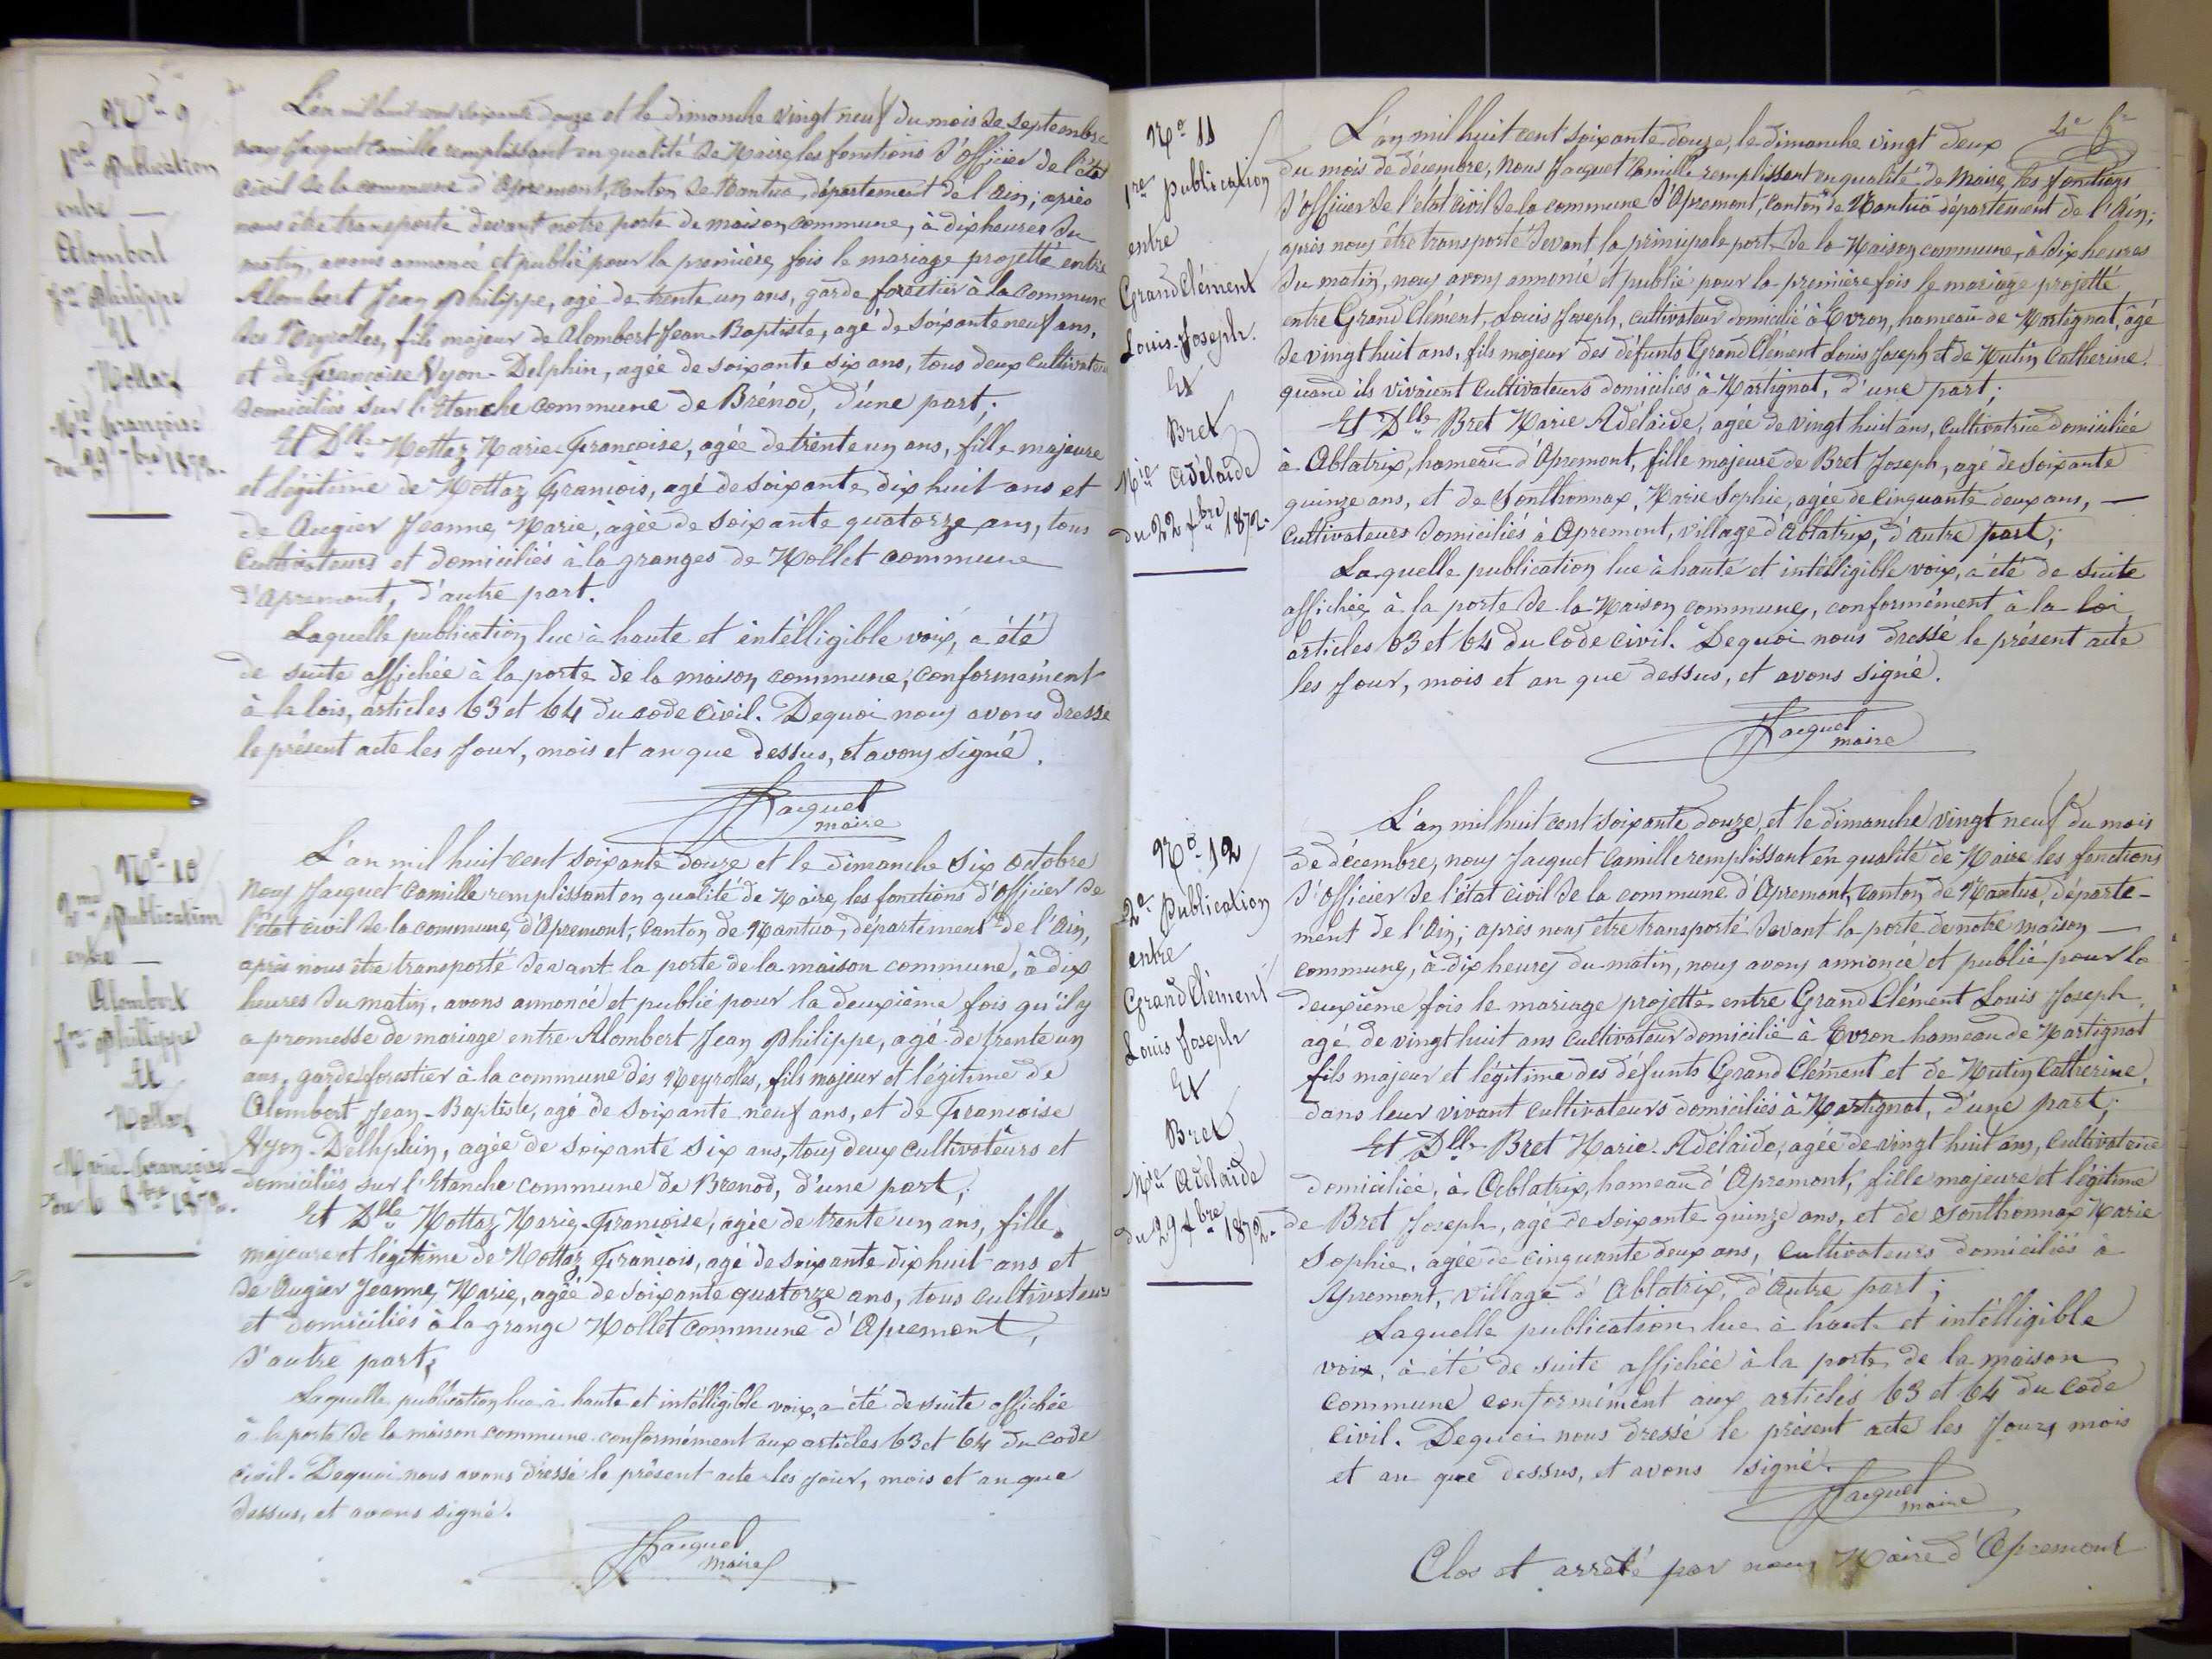 Nº 9
1re Publication
entre
Alombert
Jn Philippe
Et
Mottaz
Mie Françoise
du 29 7bre 1872.
L'an mil huit cent soixante douze et le dimanche vingt neuf du mois de septembre
nous Jacquet Camille remplissant en qualité de Maire les fonctions d'officier de l'état
civil de la commune d'Apremont, Canton de Nantua, département de l'Ain; après
nous être transporté devant notre porte de maison commune, à dix heures du
matin, avons annoncé et publié pour la première fois le mariage projetté entre
Alombert Jean Philippe, agé de trente un ans, garde forestier à la commune
des Neyrolles, fils majeur de Alombert Jean-Baptiste, agé de soixante neuf ans,
et de Françoise Nyon-Delphin, agée de soixante six ans, tous deux cultivateurs
domiciliés sur l'Etanche commune de Brénod, d'une part;
Et Dlle Mottaz Marie-Francoise, agée de trente un ans, fille majeure
et légitime de Mottaz François, agé de soixante dix huit ans et
de Augier Jeanne Marie, agée de soixante quatorze ans, tous
cultivateurs et domiciliés à la granges de Mollet commune
d'Apremont, d'autre part.
Laquelle publication lue à haute et intélligible voix, a été
de suite affichée à la porte de la maison commune, conformément
à la lois, articles 63 et 64 du code civil. Dequoi nous avons dressé
le présent acte les Jour, mois et an que dessus, et avons signé.
Jacquet
maire
Nº 10
2me Publication
entre
Alombert
Jn Philippe
Et
Mottaz
Marie-Françoise
du 6 8bre 1872.
L'an mil huit cent soixante douze et le dimanche six octobre
Nous Jacquet Camille remplissant en qualité de Maire, les fonctions d'officier de
l'état civil de la commune d'Apremont, Canton de Nantua, département de l'Ain,
après nous être transporté devant la porte de la maison commune, à dix
heures du matin, avons annoncé et publié pour la deuxième fois qu'il y
a promesse de mariage entre Alombert Jean Philippe, agé de trante un
ans, garde forestier à la commune des Neyrolles, fils majeur et légitime de
Alombert Jean-Baptiste, agé de soixante neuf ans, et de Francoise
Nyon-Delhphin, agée de soixante six ans, tous deux cultivateurs et
domiciliés sur l'Etanche commune de Brenod, d'une part;
Et Dlle Mottaz Marie-Francoise, agée de trente un ans, fille
majeure et légitime de Mottaz François, agé de soixante dix huit ans et
de Augier Jeanne, Marie, agée de soixante quatorze ans, tous cultivateurs
et domiciliés à la grange Mollet commune d'Apremont,
d'autre part;
Laquelle publication lue à haute et intélligible voix, a été de suite affichée
à la porte de la maison commune conformément aux articles 63 et 64 du code
civil. Dequoi nous avons dressé le présent acte les jour, mois et an que
dessus, et avons signé.
Jacquet
maire
Nº 11
1re publication
entre
Grand Clément
Louis-Joseph.
Et
Bret
Mie Adélaide
du 22 Xbre 1872.
L'an mil huit cent soixante douze, le dimanche vingt deux
du mois de décembre, nous Jacquet Camille remplissant en qualité de Maire, les fonctions
d'officier de l'état civil de la commune d'Apremont, canton de Nantua département de l'Ain;
après nous être transporté devant la principale porte de la Maison commune, à dix heures
du matin, nous avons annoncé et publié pour la première fois le mariage projetté
entre Grand Clément, Louis Joseph, cultivateur domicilié à Evron, hameau de Martignat, agé
de vingt huit ans, fils majeur des défunts Grand Clément Louis Joseph et de Mutin Catherine.
quand ils vivaient cultivateurs domiciliés à Martignat, d'une part;
Et Dlle Bret Marie Adélaide, agée de vingt huit ans, cultivatrice domiciliée
à Ablatrix, hameau d'Apremont, fille majeure de Bret Joseph, agé de soixante
quinze ans, et de Sonthonnax, Marie Sophie, agée de cinquante deux ans,
cultivateurs domiciliés à Apremont, village d'Ablatrix, d'autre part;
Laquelle publication lue à haute et intélligible voix, a été de suite
affichée à la porte de la Maison commune, conformément à la loi,
articles 63 et 64 du code civil. Dequoi nous dressé le présent acte
les Jour, mois et an que dessus, et avons signé.
Jacquet
maire
Nº 12
2e publication
entre
Grand Clément
Louis Joseph
Et
Bret
Mie Adélaide
du 29 Xbre 1872.
L'an mil huit cent soixante douze, et le dimanche vingt neuf du mois
de décembre, nous Jacquet Camille remplissant en qualité de Maire les fonctions
d'officier de l'état civil de la commune d'Apremont, canton de Nantua, départe-
ment de l'Ain; après nous être transporté devant la porte de notre maison
commune, à dix heures du matin, nous avons annoncé et publié pour la
deuxième fois le mariage projetté entre Grand Clément Louis Joseph,
agé de vingt huit ans cultivateur domicilié à Evron hameau de Martignat
fils majeur et légitime des défunts Grand Clément et de Mutin Catherine,
dans leur vivant cultivateurs domiciliés à Martignat, d'une part;
Et Dlle Bret Marie Adélaide, agée de vingt huit ans, cultivatrice
domiciliée, à Ablatrix, hameau d'Apremont, fille majeure et légitime
de Bret Joseph, agé de soixante quinze ans, et de Sonthonnax Marie
Sophie, agée de cinquante deux ans, cultivateurs domiciliés à
Apremont, village d'Ablatrix, d'Autre part;
Laquelle publication lue à haute et intélligible
voix, à été de suite affichée à la porte de la maison
commune conformément aux articles 63 et 64 du code
civil. Dequoi nous dressé le présent acte les Jours, mois
et an que dessus, et avons signé.
Jacquet
maire
Clos et arrêté par nous Maire d'Apremont